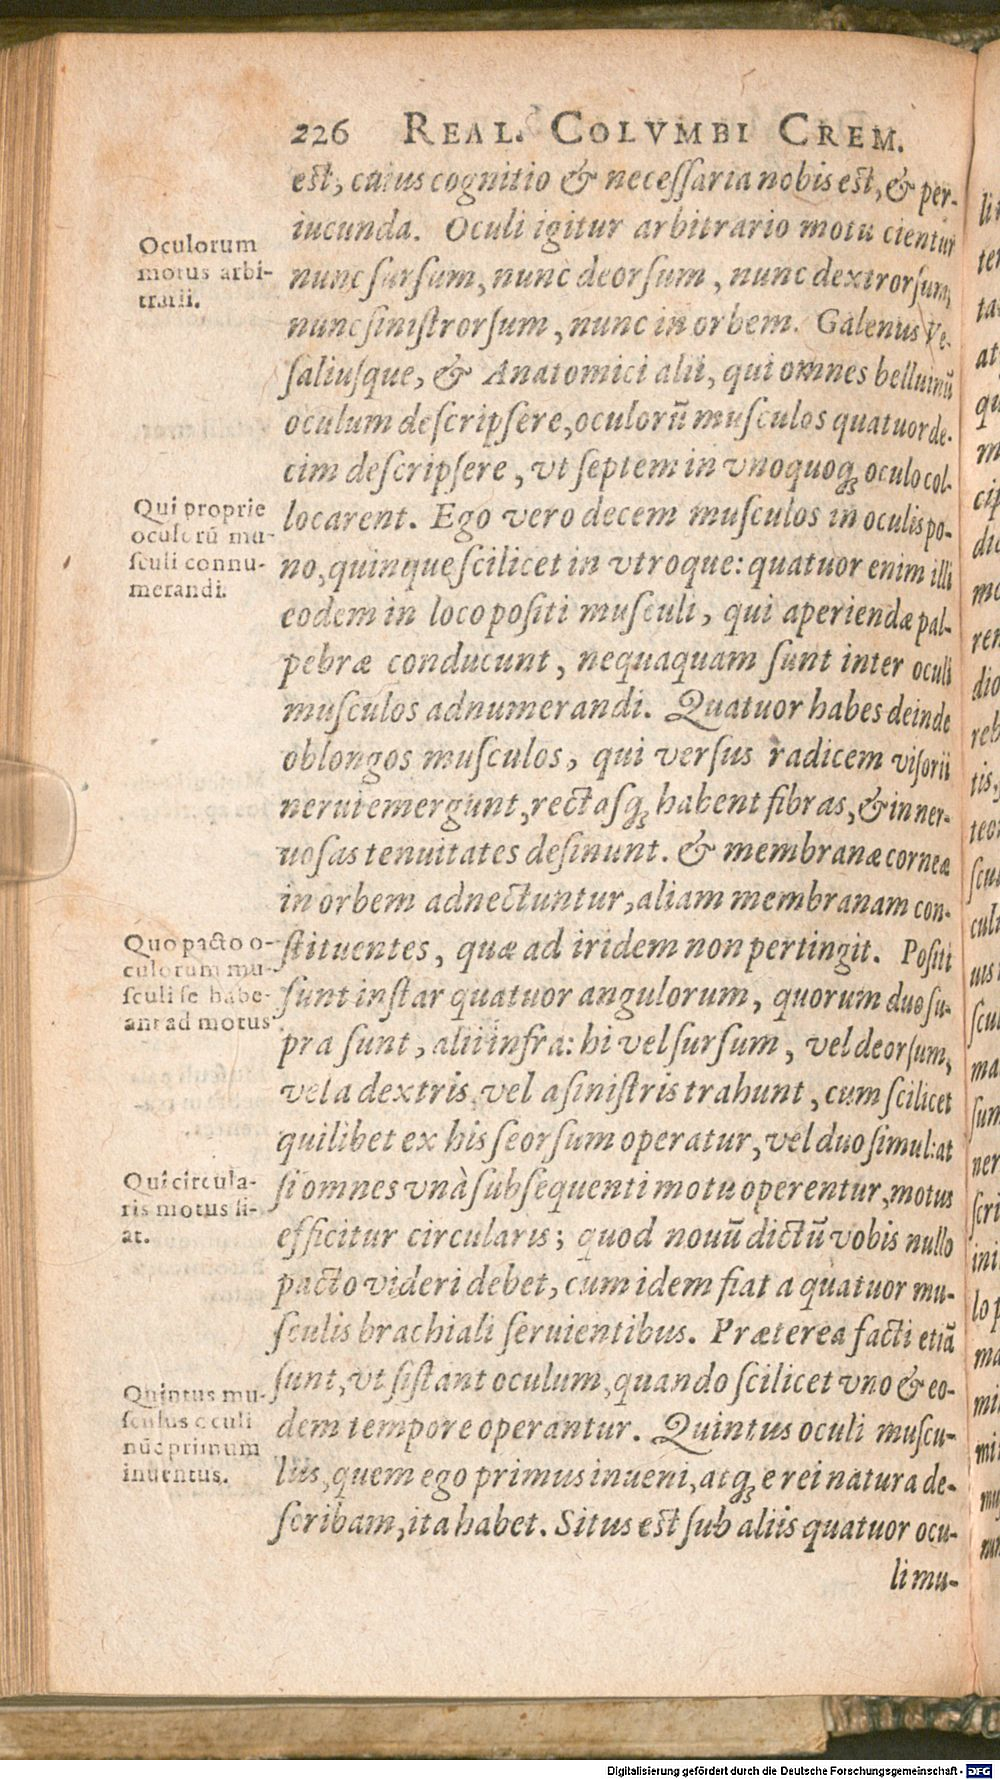 226 REAL. COLVMBI CREM.
est, cuius cognitio & necessaria nobis est, & per-
iucunda. Oculi igitur arbitrario motu cientur
nunc sursum, nunc deorsum, nunc dextrorsum,
nunc sinistrorsum, nunc in orbem. Galenus Ve-
saliusque, & Anatomici alii, qui omnes belluinū
oculum descripsere, oculorū musculos quatuorde-
cim descripsere, vt septem in vnoquoq; oculo col-
locarent. Ego vero decem musculos in oculis po-
no, quinque scilicet in vtroque: quatuor enim illi
eodem in loco positi musculi, qui aperiendæ pal-
pebræ conducunt, nequaquam sunt inter oculi
musculos adnumerandi. Quatuor habes deinde
oblongos musculos, qui versus radicem visorii
nerui emergunt, rectasq; habent fibras, & in ner-
uosas tenuitates desinunt. & membranæ corneæ
in orbem adnectuntur, aliam membranam con-
stituentes, quæ ad iridem non pertingit. Positi
sunt instar quatuor angulorum, quorum duo su-
pra sunt, alii infra: hi vel sursum, vel deorsum,
vel a dextris vel a sinistris trahunt, cum scilicet
quilibet ex his seorsum operatur, vel duo simul: at
si omnes vnà subsequenti motu operentur, motus
efficitur circularis; quod nouū dictū vobis nullo
pacto videri debet, cum idem fiat a quatuor mu-
sculis brachiali seruientibus. Præterea facti etiā
sunt, vt sistant oculum, quando scilicet vno & eo-
dem tempore operantur. Quintus oculi muscu-
lus, quem ego primus inueni, atq; e rei natura de-
scribam, ita habet. Situs est sub aliis quatuor ocu-
li mu-
Oculorum
motus arbi-
trarii.
Qui proprie
oculorū mu-
sculi connu-
merandi.
Quo pacto o-
culorum mu-
sculi se habe-
ant ad motus
Qui circula-
ris motus fi-
at.
Quintus mu-
sculus oculi
nūc primum
inuentus.
Digitalisierung gefördert durch die Deutsche Forschungsgemeinschaft - DFG